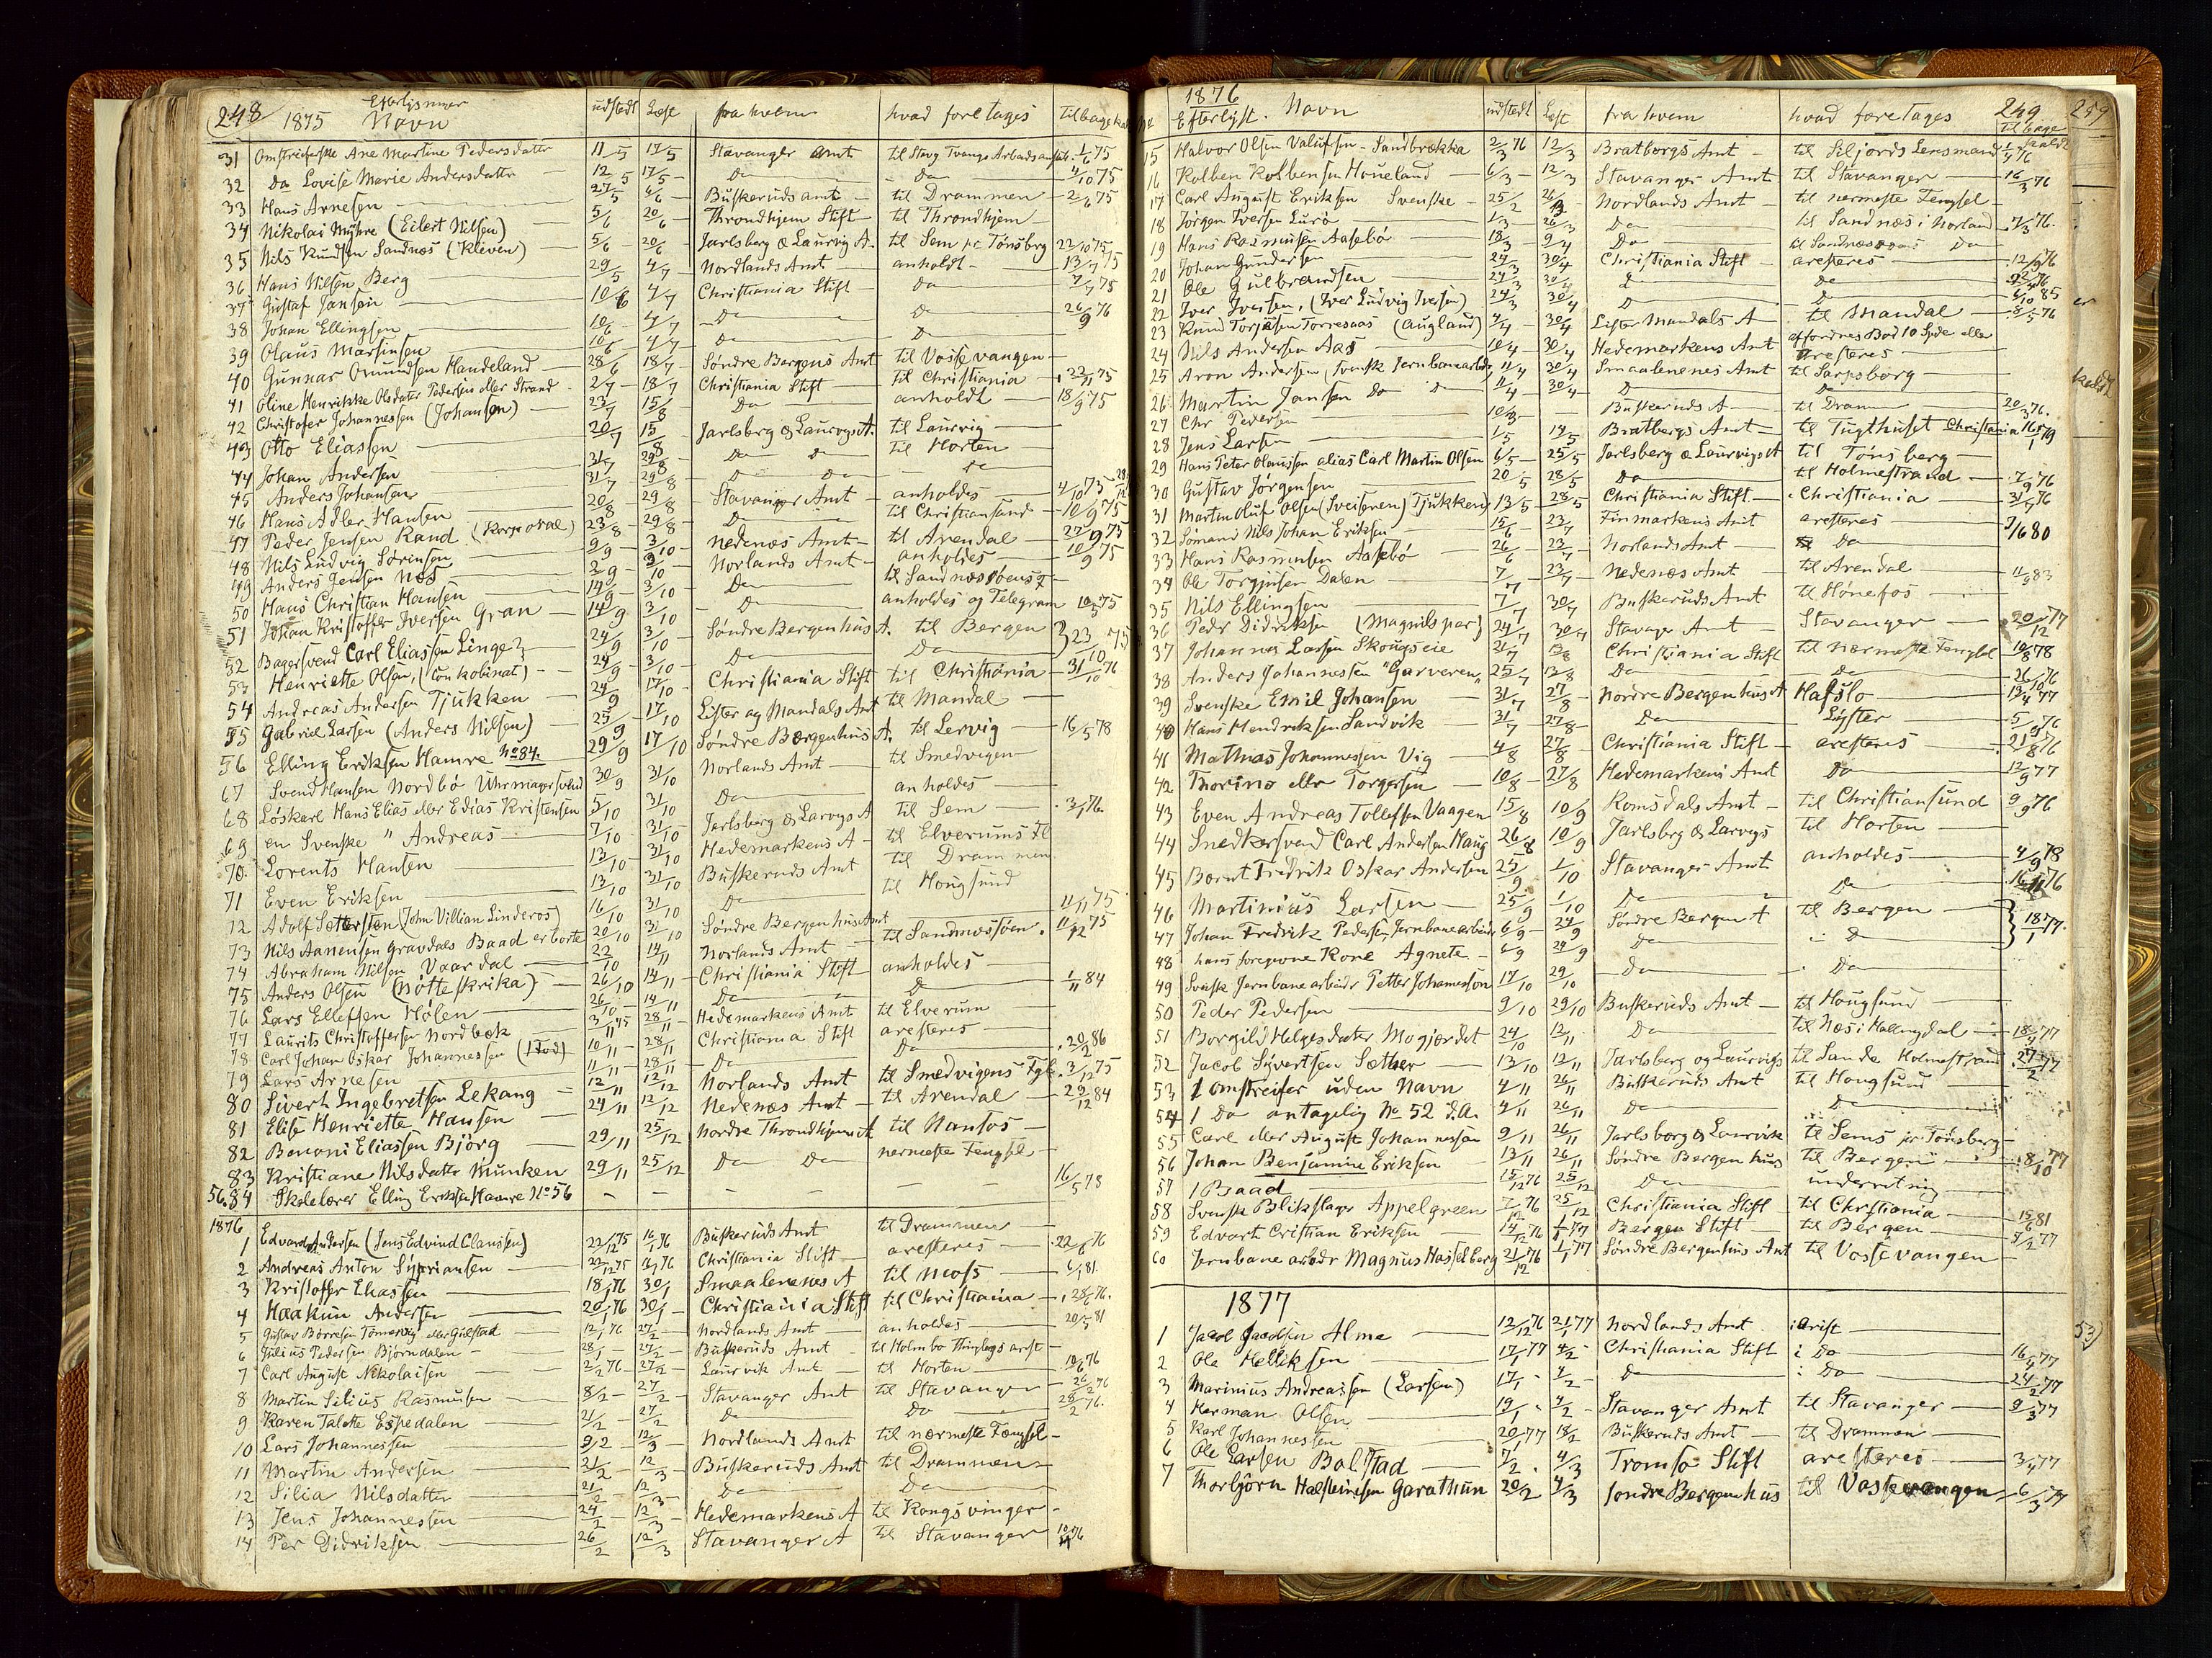 248 1875 Efterlysninger Navn udstedt Læst fra hvem hvad foretages Tilbagekal
31 Omstreiferske Ane Martine Pedersdatter 11/5 17/5 Stavanger Amt til Stavg Tvangs Arbeidsanstalt 1/6 75
32 Do Lovise Marie Andersdatter 12/5 17/5 Do Do 4/10 75
33 Hans Arnesen 27/5 6/6 Buskeruds amt til Drammen 2/6 75
34 Nikolai Myhre (Eilert Nilsen) 5/6 20/6 Throndhjem Stift til Throndhjem
35 Nils Knudsen Sandnæs (Kleven) 5/6 20/6 Jarlsberg & Laurvig A. til Sem pr Tønsbrg 22/10 75
36 Hans Nilsen Berg 29/5 4/7 Nordlands Amt anholdt 13/7 75
37 Gustaf Jansen 10/6 4/7 Christiania Stift Do 7/7 75
38 Johan Ellingsen 10/6 4/7 Do Do 26/9 76
39 Olaus Marsinsen 10/6 4/7 Do Do
40 Gunnar Omundsen Handeland 28/6 18/7 Søndre Bergens Amt til Vossevangen
41 Oline Henrikke Olsdater Pedersen eller Strand 2/7 18/7 Christiania Stift til Christiania 22/11 75
42 Christofer Johannessen (Johansen) 23/7 15/8 Do anholdt 18/9 75
43 Otto Eliassen 20/7 15/8 Jarlsberg & Laurvgs A. til Laurvig
44 Johan Andersen 31/7 29/8 Do Do til Horten
45 Anders Johansen 31/7 29/8 Do Do Do
46 Hans Adler Hansen 20/8 29/8 Stavanger Amt anholdes 4/10 75
47 Peder Jensen Rand (Korporal) 23/8 29/8 Do til Christiansand 10/9 75
48 Nils Ludvig Sørensen 9/9 3/10 Nedenæs Amt til Arendal 22/9 75
49 Anders Jensen Næs 2/9 3/10 Norlands Amt anholdes 10/9 75
50 Hans Christian Hansen 14/9 3/10 Do til Sandnæssøens F
51 Johan Kristoffer Iversen Gran 14/9 3/10 Do anholdes og Telegram 10/5 75
52 Bagersvend Carl Eliassen Linge? 24/9 3/10 Søndre Bergenhus A. til Bergen 23/10 75
53 Henriette Olsen, (Conkobinat) 24/9 3/10 Do Do
54 Andreas Andersen Tjukken 24/9 17/10 Christiania Stift til Christiania 31/10 76
55 Gabriel Larsen (Anders Nilsen) 25/9 17/10 Lister og Mandals Amt til Mandal
56 Elling Eriksen Hamre No 84. 29/9 17/10 Søndre Bergenhus A. til Lervig 16/5 78
67 Svend Hansen Nordbø Uhrmagersvend 30/9 31/10 Norlands Amt til Smedvigen
68 Løskarl Hans Elias eller Edias Kristensen 5/10 31/10 Do anholdes
69 en Svenske " Andreas 7/10 31/10 Jarlsberg & Larvgs A til Sem 3/1 76
70 Lorents Hansen 13/10 31/10 Hedemarkens A til Elverums Fl
71 Even Eriksen 13/10 31/10 Buskeruds Amt til Drammen
72 Adolf Settersten (John Villian Linderos) 16/10 31/10 Do til Hougsund 11/11 75
73 Nils Aanensen Gravdals Baad er borte 20/10 31/10 Søndre Bergenhus Amt
74 Abraham Nilsen Vaardal 22/10 14/11 Norlands Amt til Sandnæssøen 11/12 75
75 Anders Olsen (Nøtteskrika) 26/10 14/11 Christiania Stift anholdes
76 Lars Ellefsen Hølen 26/10 14/11 Do Do 1/11 84
77 Laurits Christoffersen Nordbek 3/11 75 28/11 Hedemarkens Amt til Elverum
78 Carl Johan Oskar Johannessen (Tod) 10/11 28/11 Christiania Stift aresteres
79 Lars Arnesen 11/11 28/11 Do Do 20/2 86
80 Sivert Ingebretsen Lekang 12/11 12/12 Norlands Amt til Smedvigens Fgl. 3/12 75
81 Elise Henriette Hansen 24/11 12/12 Nedenæs Amt til Arendal 29/12 84
82 Benoni Eliassen Bjørg 29/11 25/12 Nordre Throndhjems A til Namsos
83 Kristiane Nilsdatter Munken 29/11 25/12 Do Do nærmeste Fengsel
56.84 Skolelærer Elling Eriksen Hamre No 56 16/5 78
1876
1 Edvard Andersen (Jens Edvind Claussen) 22/12 75 16/1 76 Buskeruds Amt til Drammen
2 Andreas Anton Syprianssen 22/12 75 16/1 76 Christiania Stift aresteres 22/6 76
3 Kristoffer Eliassen 18/1 76 30/1 Smaalenenes A til Moss 6/1 81
4 Haakun Andersen 20/1 76 30/1 Christiania Stift til Christiania 28/6 76.
5 Gustav Børresen Tømervig eller Gulstad 12/1 76 27/2 Nordlands Amt anholdes 20/5 81
6 Julius Pedersen Bjørndalen 28/1 27/2 Buskeruds Amt til Holmbo Thinglags arrest
7 Carl August Nikolaisen 2/2 76 27/2 Laurvik Amt til Horten 10/6 76
8 Martin Silius Rasmusen 8/2 27/2 Stavanger Amt til Stavanger 26/2 76
9 Karen Talette Espedalen 21/2 27/2 Do Do 28/2 76.
10 Lars Johannessen 9/2 12/3 Nordlands Amt til nærmeste Fængsel
11 Martin Andersen 21/2 12/3 Buskeruds Amt til Drammen
12 Silia Nilsdatter 21/2 12/3 Do Do
13 Jens Johannessen 24/2 12/3 Hedemarkens A til Kongsvinger
14 Per Didriksen 26/2 12/3 Stavanger A til Stavanger 10/4 76
No 1876 Efterlyst. Navn udstedt Læst fra hvem hvad foretages 249 Tilbage kaldt
259
15 Halvor Olsen Valufsen - Sandbrækka 2/3 76 12/3 Bratbergs Amt til Siljords Lensmand 1/4 76
16 Kolben Kolbensen Honeland 6/3 12/3 Stavanger Amt til Stavanger 16/3 76
17 Carl August Eriksen Svenske 25/2 26/3 Nordlands Amt til nermeste Fengsel
18 Jørgen Iversen Lurø 1/3 26/3 Do til Sandnæs i Norland 7/3 76.
19 Hans Rasmussen Aasebø 18/3 9/4 Do til Sandnæssøen Do
20 Johan Gundersen 24/3 30/4 Christiania Stift aresteres 12/9 76
21 Ole Gulbrandsen 24/3 30/4 Do Do 22/4 76
22 Iver Iversen, (Iver Ludvig Iversen) 24/3 30/4 Do Do 6/10 85
23 Knud Torjusen Torresaas (Augland) 4/4 30/4 Lister Mandals A til Mandal 8/5 76
24 Nils Andersen Aas 10/4 30/4 Hedemarkens Amt affordres Bod 10 Spde eller aresteres
25 Aron Andersen (svensk Jernbanearbdr) 11/4 30/4 Smaalenenes Amt til Sarpsborg
26 Martin Jansen Do 11/4 30/4 Do Do
27 Chr Pedersen 10/3 Buskeruds A til Dram 20/3 76.
28 Jens Larsen 1/5 14/5 Bratbergs Amt til Tugthuset Christiania 16/1 79
29 Hans Peter Olaussen alias Carl Martin Olsen 6/5 25/5 Jarlsberg & Laurvigs A til Tønsberg
30 Gustav Jørgensen 20/5 28/5 Do til Holmestrand 7/9 76
31 Martin Oluf Olsen (Sveiseren) Tjukken) 13/5 28/5 Christiania Stift Christiania 31/7 76
32 Sømand Nils Johan Eriksen 15/6 23/7 Finmarkens Amt aresteres
33 Hans Rasmusen Aasebø 26/6 23/7 Norlands Amt Do 7/6 80
34 Ole Torgjusen Dalen 7/7 23/7 Nedenæs Amt til Arendal
35 Nils Ellingsen 7/7 30/7 Buskeruds Amt til Hønefos 11/9 83
36 Pedr Didriksen (Magnils par) 24/7 30/7 Stavager Amt Stavanger 20/12 77
37 Johannes Larsen Skougseie 21/7 13/8 Christiania Stift til nærmeste Fengsel 10/8 78
38 Anders Johannesen "Garveren" 25/7 13/8 Do Do 26/10 76
39 Svenske Emil Johansen 31/7 27/8 Nordre Bergenhus A Hafslo 12/4 77
40 Hans Hendriksen Sandvik 31/7 27/8 Do Lyster 5/9 76
41 Mathias Johannessen Vig 4/8 27/8 Christiania Stift aresteres 21/8 76
42 Thorino eller Torgersen 10/8 27/8 Hedemarkens Amt Do 12/9 77
43 Even Andreas Tollefsen Vaagen 15/8 10/9 Romsdals Amt til Christiansund 9/9 76
44 Snedkersvend Carl Andersen Haug 26/8 10/9 Jarlsbrg & Larvgs til Horten
45 Bernt Fredrik Oskar Andersen 25/9 1/10 Stavanger Amt anholdes 4/9 78
46 Martinius Larsen 25/9 1/10 Do Do 76
47 Johan Fredrik Pedersen, Jernbanearbeider 6/9 24/9 Søndre Bergen A til Bergen 18/1 77.
48 hans foregivne Kone Agnete 6/9 24/9 Do Do
49 Svensk Jernbane arbeidr Petter Johanesson 17/10 29/10 Do Do
50 Peder Pedersen 9/10 29/10 Buskeruds Amt til Hougsund
51 Borgild Helgesdater Mogjordet 24/10 12/11 Do til Næs i Hallingdal 18/4 77
52 Jacob Syvertsen Sæther 13/10 12/11 Jarlsberg og Laurvigs til Sande Holmestrand 27/2 77
53 1 omstreifer uden Navn 4/11 26/11 Buskeruds Amt til Hougsund
54 1 Do antagelig No 52 d.A. 4/11 26/11 Do Do
55 Carl eller August Johannessen 9/11 26/11 Jarlsborg & Laurvik til Sems pr Tønsberg
56 Johan Benjamine Eriksen 13/11 26/11 Søndre Bergenhus til Bergen 8/10 77
57 1 Baad 15/12 76 25/12 Do underretning
58 Svensk Blikslager Appelgreen 7/12 76 25/12 Christiania Stift til Chrstiania 15/6 81
59 Edvart Cristian Eriksen 14/12 76 1/1 77 Bergen Stift til Bergen 5/2 77
60 Jernbane arbdr Magnus Hasselberg 21/12 76 1/1 77 Søndre Bergenhus Amt til Vossevangen
1877
1 Jacob Jacobsen Alme 12/12 76 21/1 77 Nordlands Amt i Arrist
2 Ole Helliksen 17/1 77 4/2 Christiania Stift i Do 16/4 77
3 Marinius Andreassen (Larsen) 17/1 4/2 Do Do 24/2 77
4 Herman Olsen 19/1 4/2 Stavanger Amt til Stavanger 9/3 77
5 Karl Johannessen 20/1 77 18/2 Buskeruds Amt til Drammen
6 Ole Larsen Bolstad 7/2 4/3 Tromsø Stift aresteres 3/4 77
7 Thorbjørn Halsteinsen Garathun 20/2 4/3 Søndre Bergenhus til Vossevangen 6/3 77